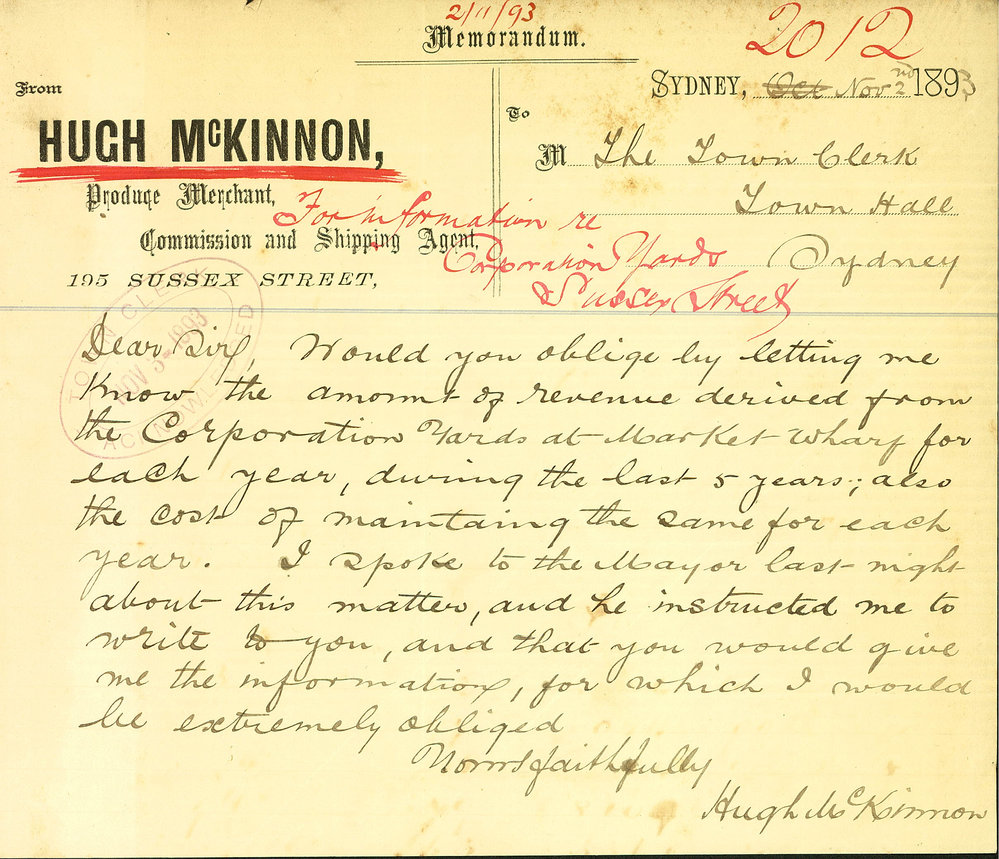 2/11/93
Memorandum.
2012
From
SYDNEY, Oct Nov 2nd 1893
HUGH McKINNON,
To
M The Town Clerk
Produce Merchant,
Town Hall
For information re
Commission and Shipping Agent,
Corporation Yards
Sydney
195 SUSSEX STREET,
Sussex Street
TOWN CLERK
NOV 3-1893
ACKNOWLEDGED
Dear Sir, Would you oblige by letting me
know the amount of revenue derived from
the Corporation Yards at Market Wharf for
each year, during the last 5 years; also
the cost of maintaing the same for each
year. I spoke to the Mayor last night
about this matter, and he instructed me to
write to you, and that you would give
me the information, for which I would
be extremely obliged
Yours faithfully
Hugh McKinnon